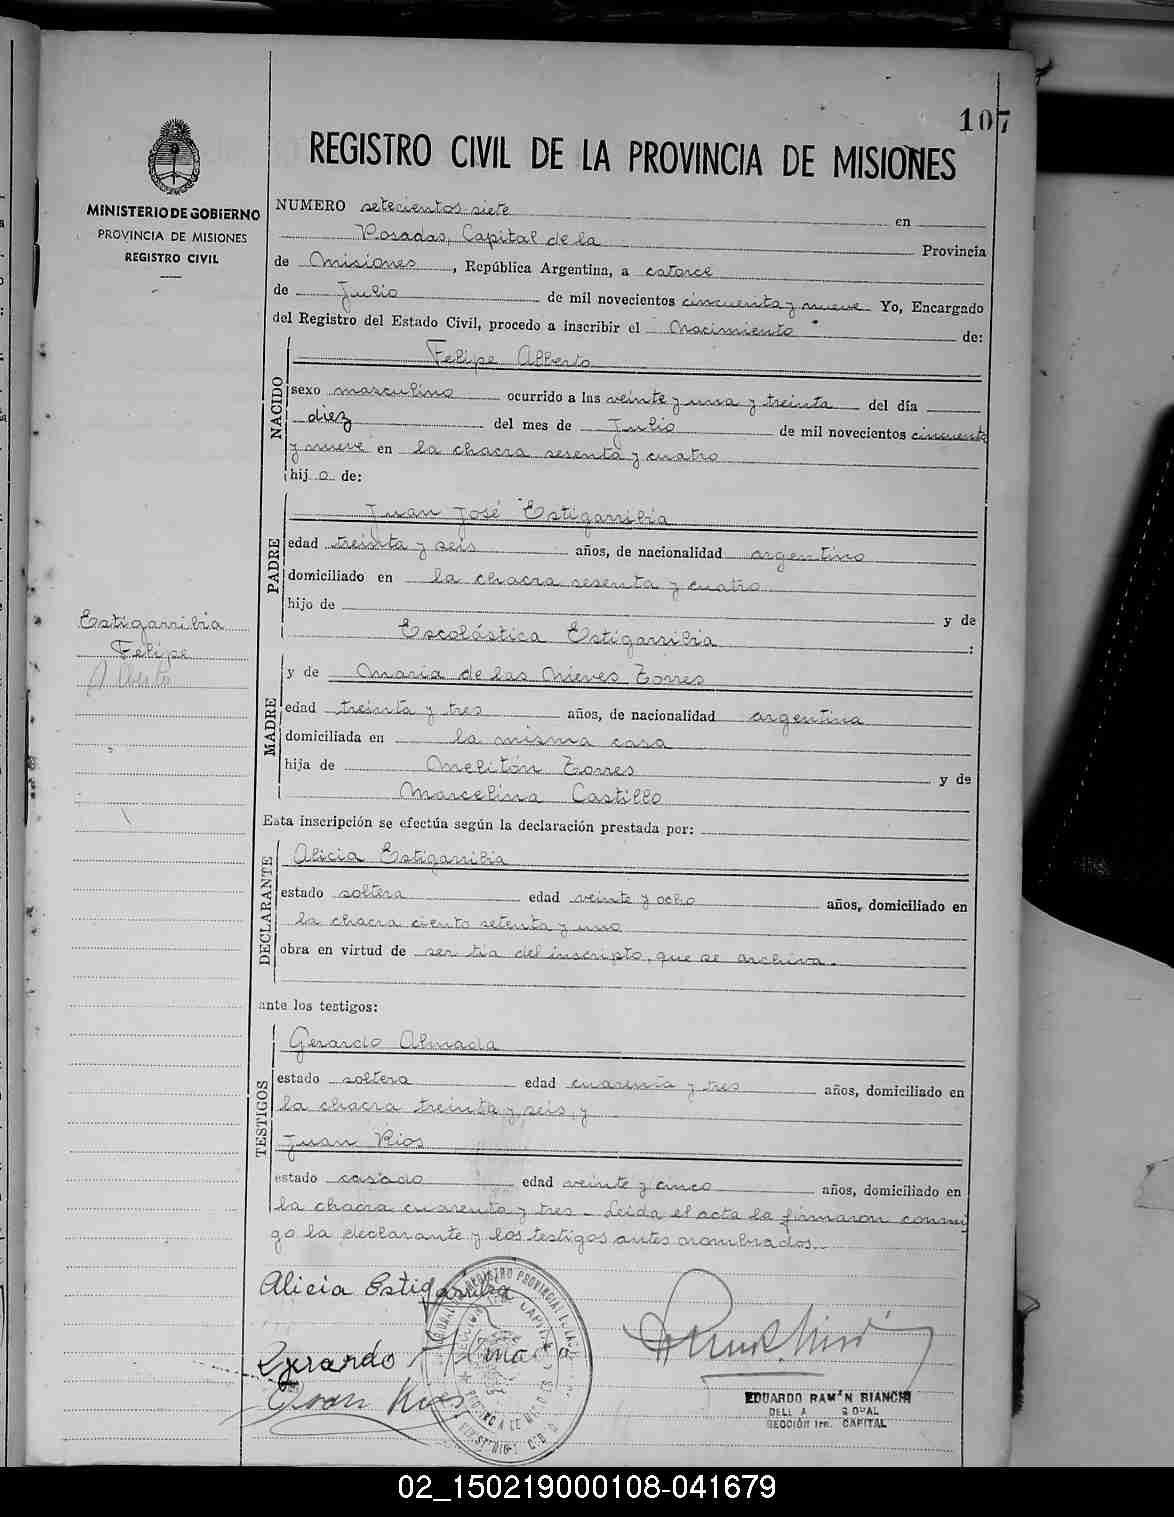 107
REGISTRO CIVIL DE LA PROVINCIA DE MISIONES
MINISTERIO DE GOBIERNO
PROVINCIA DE MISIONES
REGISTRO CIVIL
NUMERO setecientos siete en
Posadas, Capital de la Provincia
de Misiones, República Argentina, a catorce
de Julio de mil novecientos cincuenta y nueve Yo, Encargado
del Registro del Estado Civil, procedo a inscribir el Nacimiento de:
NACIDO
Felipe Alberto
sexo masculino ocurrido a las veinte y una y treinta del día
diez del mes de Julio de mil novecientos cincuenta
y nueve en la chacra sesenta y cuatro
hij o de:
PADRE
Juan José Estigarribia
edad treinta y seis años, de nacionalidad argentino
domiciliado en la chacra sesenta y cuatro
hijo de y de
Escolástica Estigarribia :
Estigarribia
Felipe
Alberto
MADRE
y de Maria de las Nieves Torres
edad treinta y tres años, de nacionalidad argentina
domiciliada en la misma casa
hija de Melitón Torres y de
Marcelina Castillo
Esta inscripción se efectúa según la declaración prestada por:
DECLARANTE
Alicia Estigarribia
estado soltera edad veinte y ocho años, domiciliado en
la chacra ciento setenta y uno
obra en virtud de ser tia del inscripto, que se archiva.
ante los testigos:
TESTIGOS
Gerardo Almada
estado soltera edad cuarenta y tres años, domiciliado en
la chacra treinta y seis, y
Juan Rios
estado casado edad veinte y cinco años, domiciliado en
la chacra cuarenta y tres - Leida el acta la firmaron conmi
go la declarante y los testigos antes nombrados.
Alicia Estigarribia
Gerardo Almada
Juan Rios
EDUARDO RAMÓN BIANCHI
SECCIÓN 1ra. CAPITAL
02_150219000108-041679